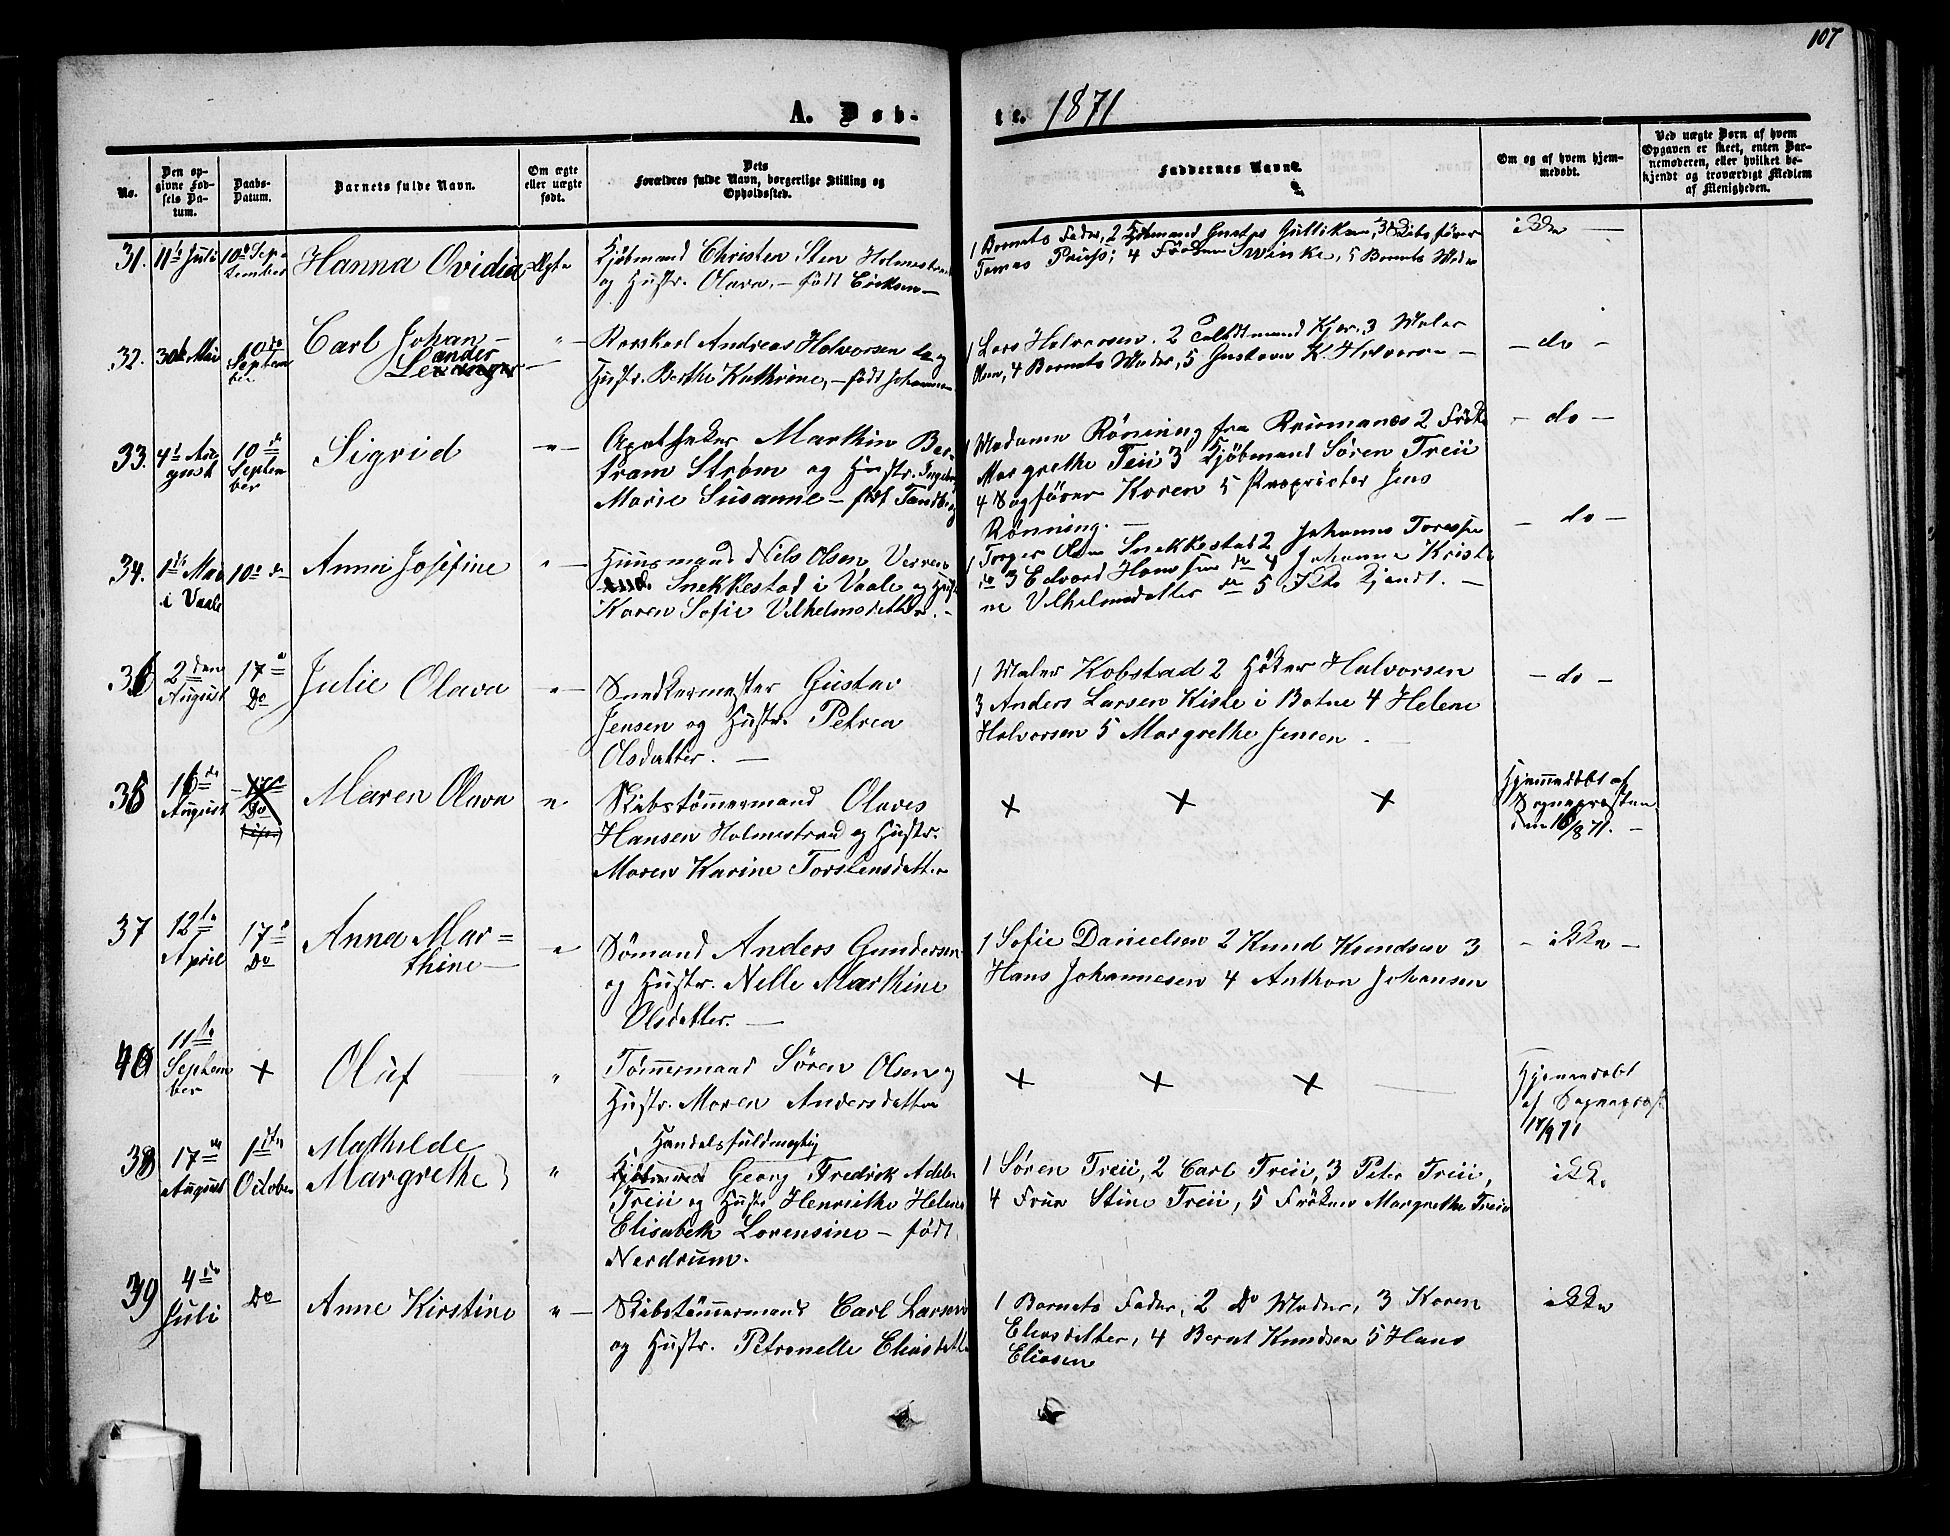 107
A. Døb-
te. 1871
No.
Den op-
givne Fød-
sels Da-
tum.
Daabs-
Datum.
Barnets fulde Navn.
Om ægte
eller uægte
født.
Dets
Forældres fulde Navn, borgerlige Stilling og
Opholdssted.
Faddernes Navne.
Om og af hvem hjem-
medøbt.
Ved uægte Børn af hvem
Opgaven er skeet, enten Bar-
nemoderen, eller hvilket be-
kjendt og troværdigt Medlem
af Menigheden.
31. 11te Juli 10de Sep-
tember
Hanna Ovidia Ægte
Kjøbmand Christen Sten Holmestrand
og Hustr. Olava, – født Eriksen –
1 Barnets Fader, 2 Kjøbmand Gustav Gulliksen, 3 Skibsfører
Tomas Preuss; 4 Frøken Swinke, 5 Barnets Moder
ikke –
32. 30te Mai 10de
Septem
ber
Carl Johan –
Lexander
" –
Andreas Halvorsen og
Hustr. Berthe Kathrine, – født Johannesen
1 Lars Halvorsen. 2 Toldtmand Kjær. 3 Maler
Olsen, 4 Barnets Moder, 5 Gustava K. Halvorsen –
– do –
33. 4de Au
gust
10de
Septem
ber
Sigrid
" –
Apotheker Marthin Ber-
tram Strøm og Hustr. Ingeborg
Marie Susanne – født Tandberg
1 Madame Rönning fra Krismanes 2 Frøken
Margrethe Teii 3 Kjøbmand Sören Treii
4 Sagfører Koren 5 Proprietær Jens
Rønning. –
– do –
34. 1ste Mai
i Vaale
10de do
Anna Josefine
" –
Huusmand Nils Olsen,
Snekkestad i Vaale og Hustr
Karen Sofie Vilhelmsdatter. –
1 Torger Olsen Snekkestad 2 Johannes Toresen
do 3 Edvard Hansen do 4 Johanne Kristi
ne Vilhelmsdatter do 5 Peter Gjendt. –
– do –
36 2den
August
17de
Do
Julie Olava
" –
Snedkermester Gustav
Jensen og Hustr. Petrea
Olsdatter. –
1 Maler Kobstad 2 Høker Halvorsen
3 Anders Larsen Kisle i Botne 4 Helene
Halvorsen 5 Margrethe Jensen –
– do –
35 16de
August
Do
Maren Olava
"
Skibstømmermand Olaves
Hansen Holmestrand og Hustr.
Maren Karine Torstensdatter
× × ×
Hjemmedøbt af
Sognepræsten
den 16/8 71. –
37 12te
April
17de
Do
Anna Mar=
thine –
"
Sømand Anders Gundersen
og Hustr. Nelle Marthine
Olsdatter. –
1 Sofie Danielsen 2 Knud Knudsen 3
Hans Johannesen 4 Anthon Johansen
– ikke –
40 11te
Septem
ber
×
Oluf
"
Tømmermand Sören Olsen og
Hustr. Maren Andersdatter
× × × –
Hjemmedøbt
af Sognepræst
17/9 71
38 17de
August
1ste
October
Mathilde
Margrethe
"
Handelsfuldmægtig
Kjøbmand Georg Fredrik Adeler
Treii og Hustr. Henriethe Helene
Elisabeth Lorensine – født
Nerdrum.
1 Søren Treii, 2 Carl Treii, 3 Peter Treii,
4 Frue Stine Treii, 5 Frøken Margrethe Treii
ikke
39 4de
Juli
Do
Anne Kirstine
" –
Skibstømmermand Carl Larsen
og Hustr. Petronelle Eliasdatter
1 Barnets Fader, 2 Do Moder, 3 Karen
Eliasdatter, 4 Bernt Knudsen 5 Hans
Eliasen
ikke